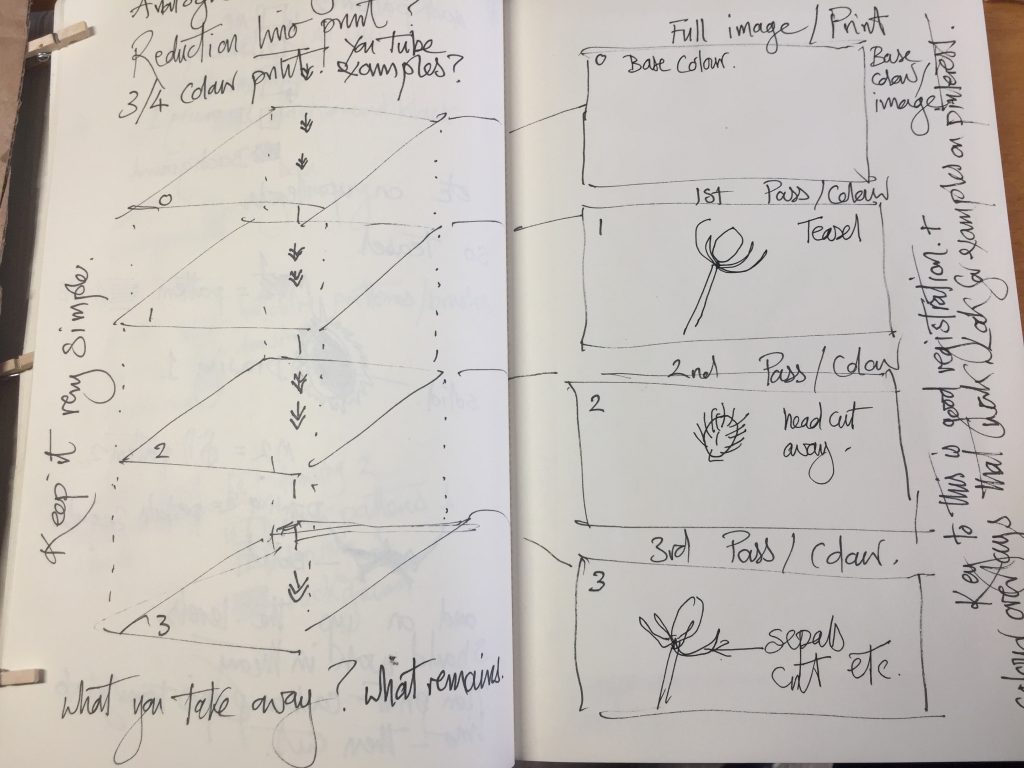 Reduction lino print?
3/4 colour print!
YouTube
examples?
0
1
2
3
Keep it very simple.
What you take away? What remains.
Full image/Print
0 Base Colour.
Base
colour/
image
1st Pass/Colour
1 Teasel
2nd Pass/Colour
2 head cut
away.
3rd Pass/Colour.
3
sepals
cut etc.
Key to this is good registration. +
that work. Look for examples on pinterest.